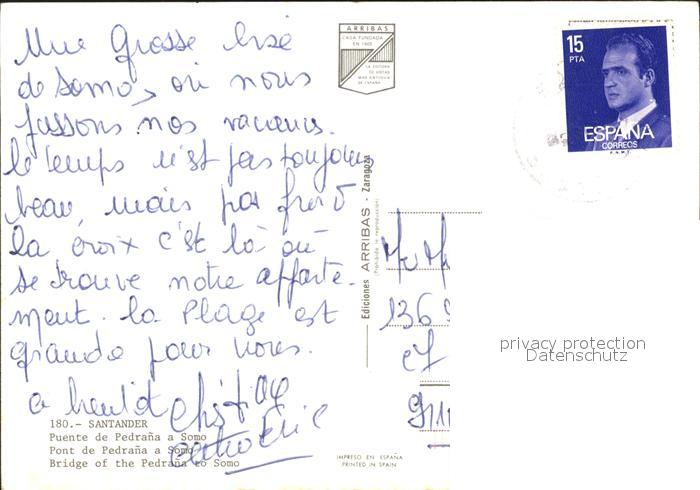 Une Grosse bise
de Somo, où nous
passons nos vacances.
le temps n'est pas toujours
beau, mais pas froid
la croix c'est là où
se trouve notre apparte-
ment. la Plage est
grande pour nous.
a bientôt
Catherine
180.- SANTANDER
Puente de Pedraña a Somo
Pont de Pedraña a Somo
Bridge of the Pedraña to Somo
ARRIBAS
CASA FUNDADA
EN 1905
LA EDITORA
DE VISTAS
MAS ANTIGUA
DE ESPAÑA
Ediciones ARRIBAS - Zaragoza
(Prohibida la reproducción)
IMPRESO EN ESPAÑA
PRINTED IN SPAIN
15
PTA
ESPAÑA
CORREOS
F.N.M.T.
136
et
privacy protection
Datenschutz